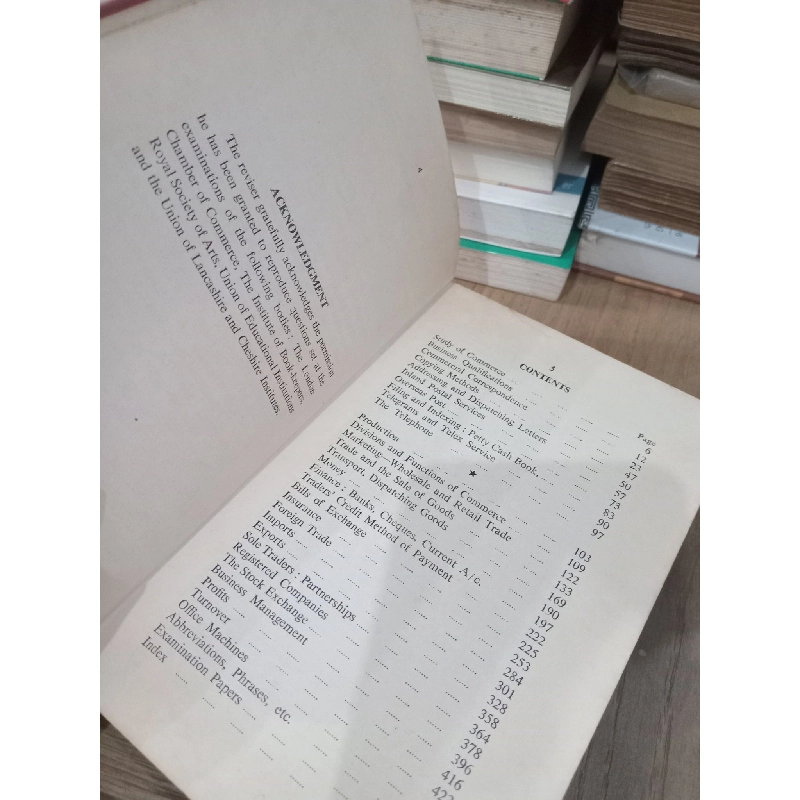 ACKNOWLEDGMENT
The reviser gratefully acknowledges the permission
he has been granted to reproduce questions set at the
examinations of the following bodies: The London
Chamber of Commerce, The Institute of Book-keepers,
Royal Society of Arts, Union of Educational Institutions
and the Union of Lancashire and Cheshire Institutes.
5
CONTENTS
Page
Study of Commerce 6
Business Qualifications 12
Commercial Correspondence 23
Copying Methods 47
Addressing and Dispatching Letters 50
Inland Postal Services 57
Overseas Post 73
Filing and Indexing: Petty Cash Book 83
Telegrams and Telex Service 90
The Telephone 97
★
Production 103
Divisions and Functions of Commerce 109
Marketing—Wholesale and Retail Trade 122
Trade and the Sale of Goods 133
Transport, Dispatching Goods 169
Money 190
Finance: Banks, Cheques, Current A/c. 197
Traders' Credit Method of Payment 222
Bills of Exchange 225
Insurance 253
Foreign Trade 284
Imports 301
Exports 328
Sole Traders: Partnerships 358
Registered Companies 364
The Stock Exchange 378
Business Management 396
Profits 416
Turnover
Office Machines
Abbreviations, Phrases, etc.
Examination Papers
Index